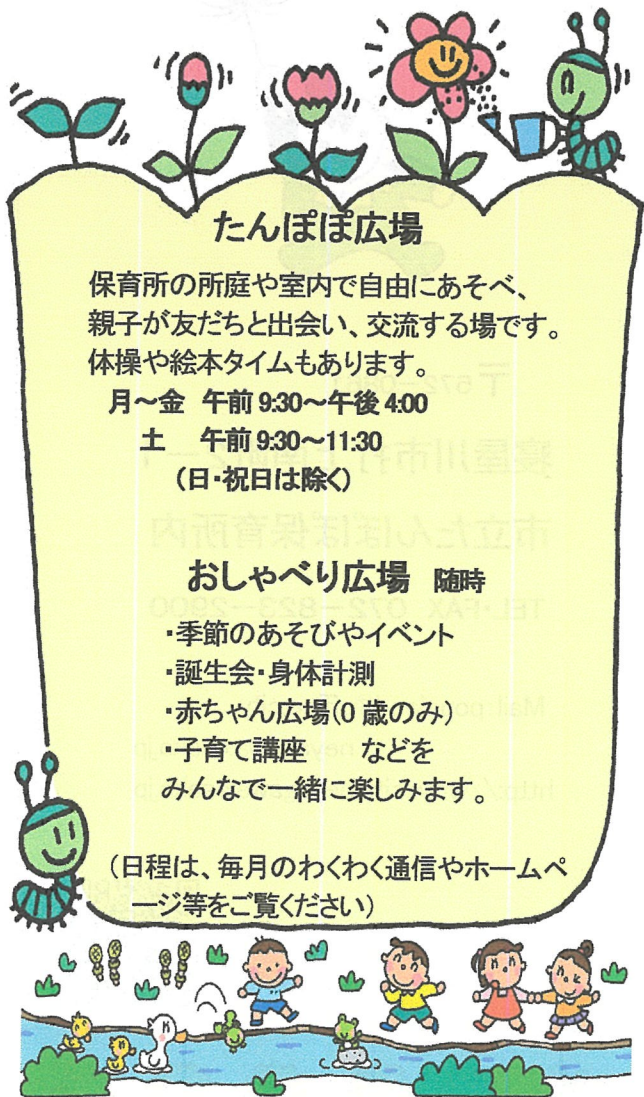 たんぽぽ広場
保育所の所庭や室内で自由にあそべ、
親子が友だちと出会い、交流する場です。
体操や絵本タイムもあります。
月～金 午前9:30～午後4:00
土 午前9:30～11:30
(日・祝日は除く)
おしゃべり広場 随時
・季節のあそびやイベント
・誕生会・身体計測
・赤ちゃん広場(0歳のみ)
・子育て講座 などを
みんなで一緒に楽しみます。
(日程は、毎月のわくわく通信やホームペ
ージ等をご覧ください)